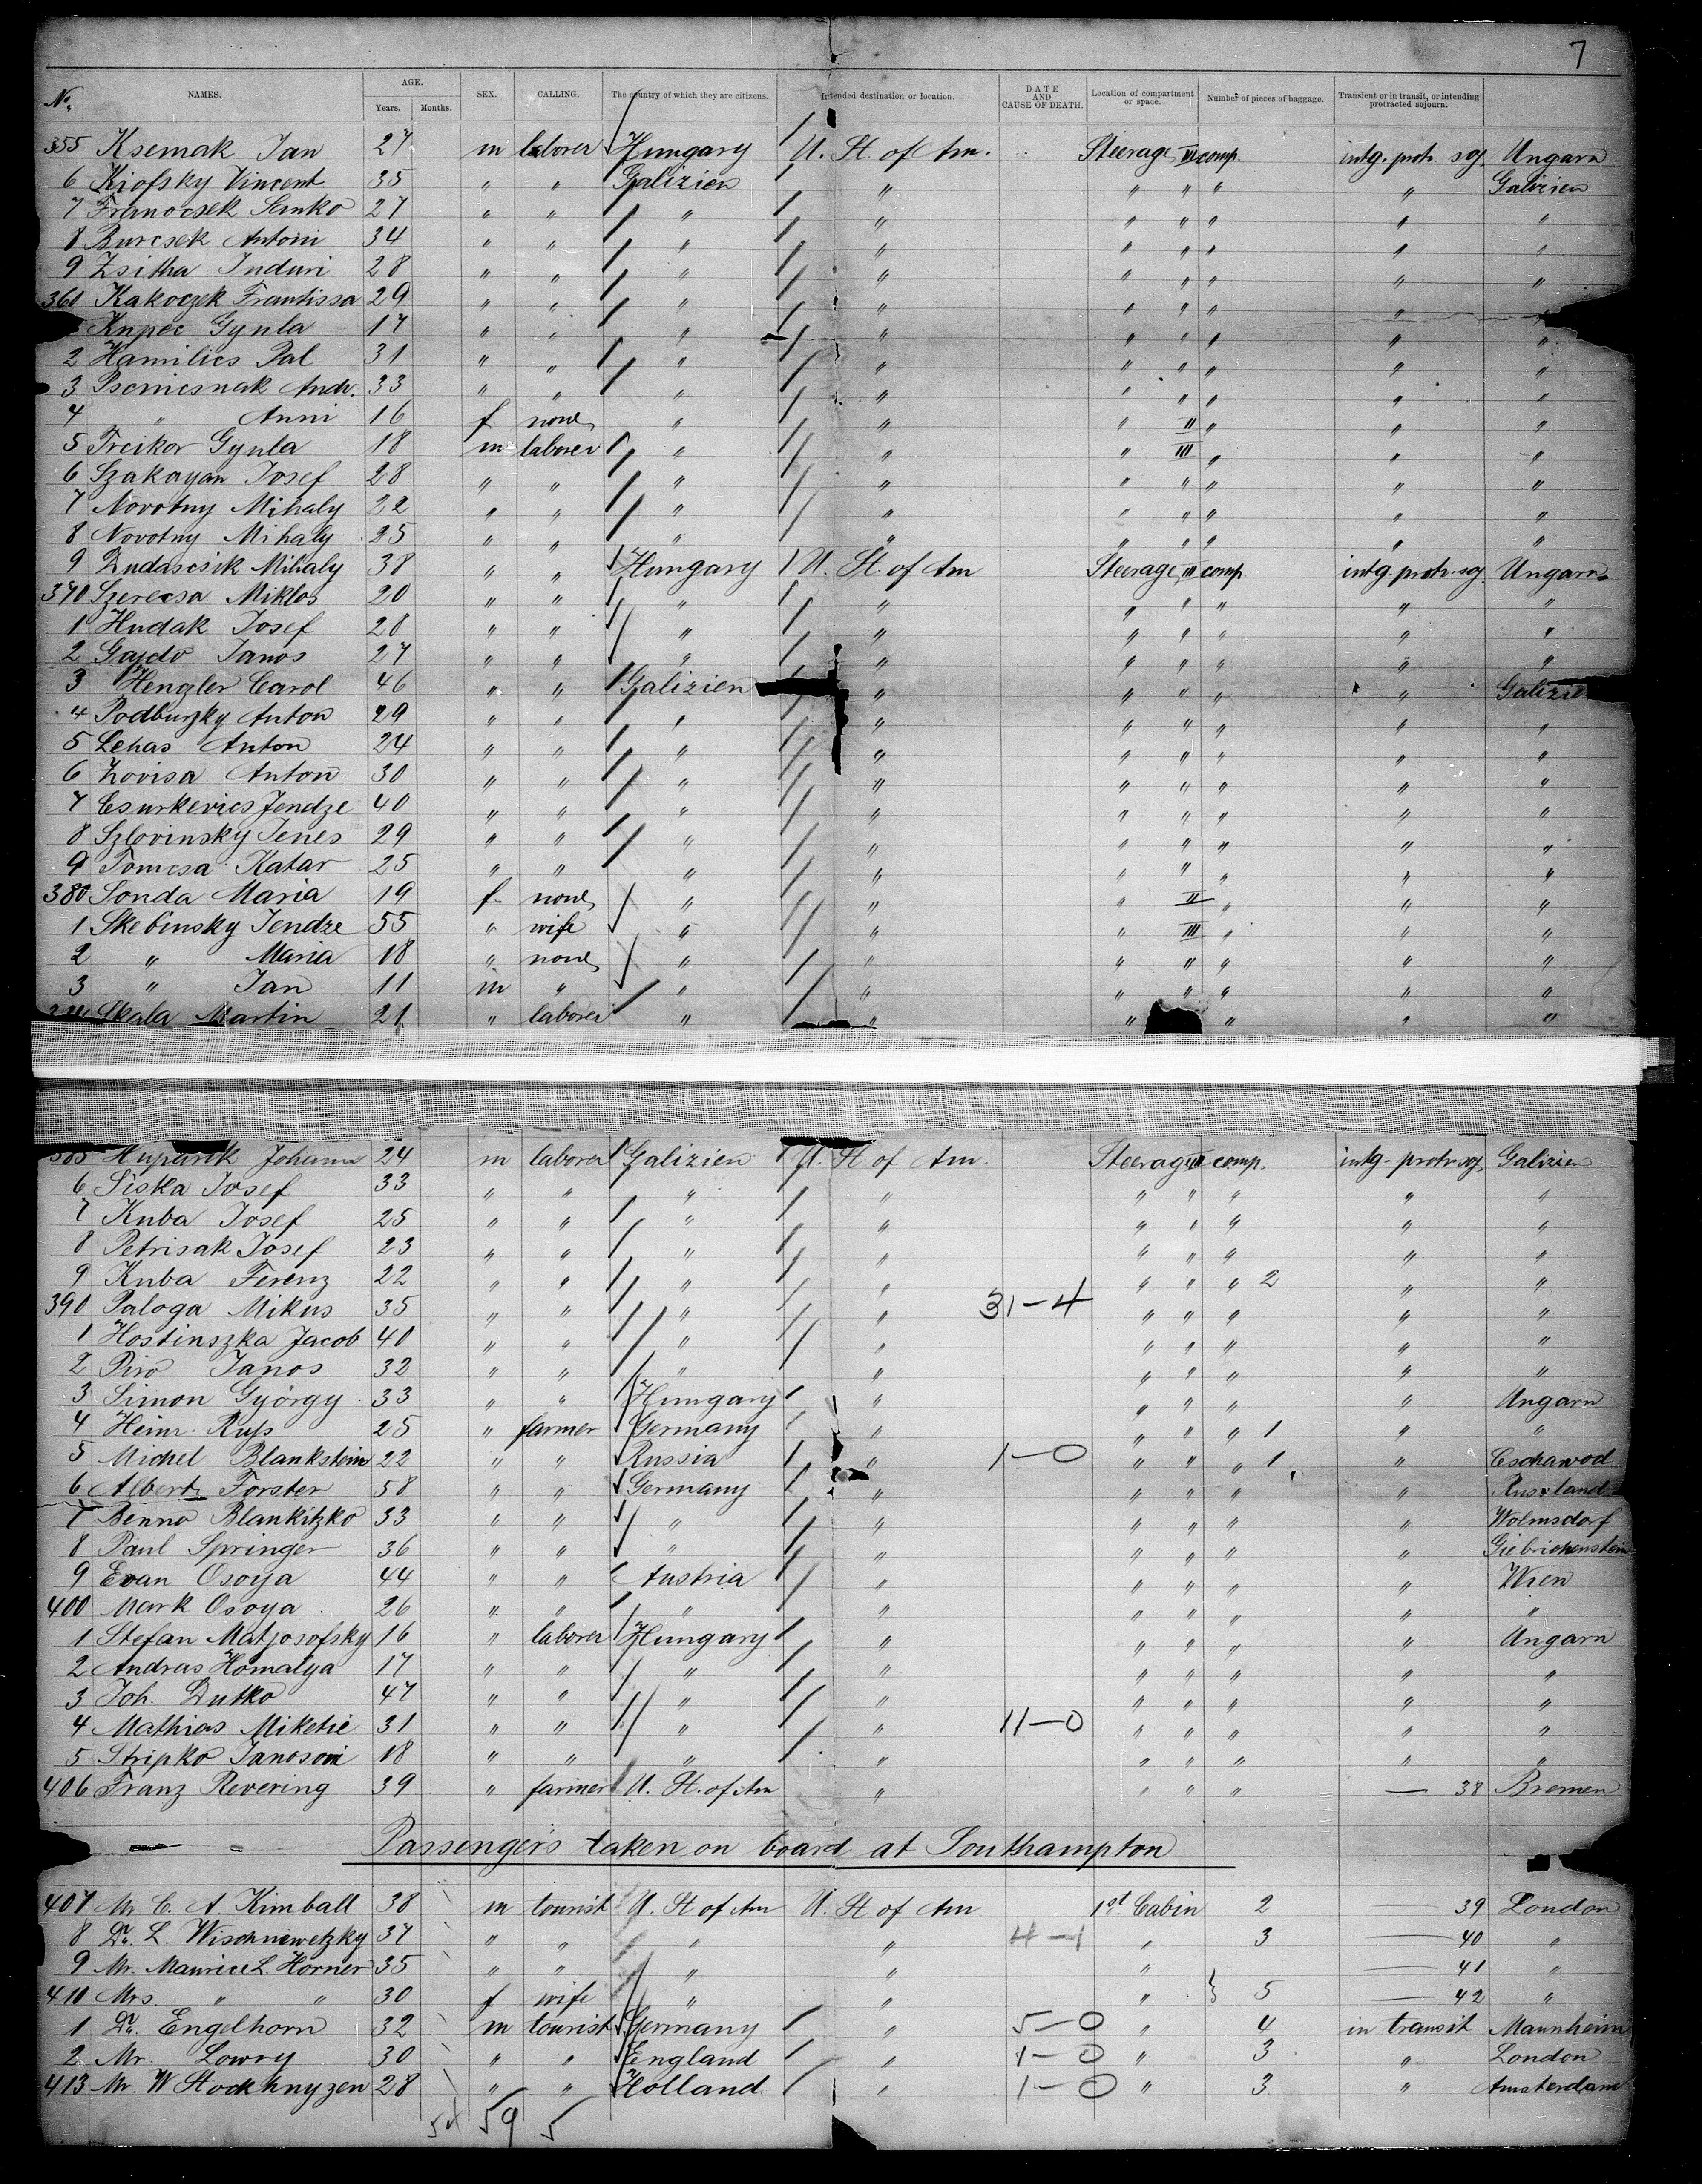 7
No. NAMES. AGE. Years. Months. SEX. CALLING. The country of which they are citizens. Intended destination or location. DATE AND CAUSE OF DEATH. Location of compartment or space. Number of pieces of baggage. Transient or in transit, or intending protracted sojourn.
355 Ksemak Jan 27 m laborer Hungary U. St. of Am. Steerage III comp. intg. protr. soj. Ungarn
6 Kiofsky Vincent 35 " " Galizien " " " " " Galizien
7 Franocsek Janko 27 " " " " " " " " "
8 Burcsek Antoni 34 " " " " " " " " "
9 Zsitha Induri 28 " " " " " " " " "
360 Kakoczek Frantissa 29 " " " " " " " " "
Knpec Gyula 17 " " " " " " " " "
2 Hamilics Pal 31 " " " " " " " " "
3 Psenicsnak Andr. 33 " " " " " " " " "
4 " Anni 16 f none " " " II " " "
5 Treikor Gyula 18 m laborer " " " III " " "
6 Szakayan Josef 28 " " " " " " " " "
7 Novotny Mihaly 22 " " " " " " " " "
8 Novotny Mihaly 25 " " " " " " " " "
9 Dudascsik Mihaly 38 " " Hungary U. St. of Am Steerage III comp. intg. protr. soj Ungarn
370 Szerecsa Miklos 20 " " " " " " " " "
1 Hudak Josef 28 " " " " " " " " "
2 Gajdo Janos 27 " " " " " " " " "
3 Hengler Carol 46 " " Galizien " " " " " Galizie
4 Podburzky Anton 29 " " " " " " " " "
5 Lehas Anton 24 " " " " " " " " "
6 Zovisa Anton 30 " " " " " " " " "
7 Csurkevics Jendze 40 " " " " " " " " "
8 Szlovinsky Jenes 29 " " " " " " " " "
9 Tomcsa Katar 25 " " " " " " " " "
380 Sonda Maria 19 f none " " " II " " "
1 Skebinsky Jendze 55 " wife " " " III " " "
2 " Maria 18 " none " " " " " " "
3 " Jan 11 m " " " " " " " "
Skala Martin 21 " laborer " " " " " "
385 Huparik Johann 24 m laborer Galizien U. St of Am. Steerage III comp. intg. protr. soj. Galizien
6 Siska Josef 33 " " " " " " " " "
7 Kuba Josef 25 " " " " " " " " "
8 Petrisak Josef 23 " " " " " " " " "
9 Kuba Ferenz 22 " " " " " " " 2 " "
390 Paloga Mikus 35 " " " " 31-4 " " " " "
1 Hostinszka Jacob 40 " " " " " " " " "
2 Piro Janos 32 " " " " " " " " "
3 Simon György 33 " " Hungary " " " " " Ungarn
4 Heinr. Rufs 25 " farmer Germany " " " " 1 " "
5 Michel Blankstein 22 " " Russia " 1-0 " " " 1 " Eschawod
6 Albert Forster 58 " " Germany " " " " " Russland
7 Benno Blankitzko 33 " " " " " " " " Wolmsdorf
8 Paul Springer 36 " " " " " " " " Giebichenstein
9 Evan Osoya 44 " " Austria " " " " " Wien
400 Mark Osoya 26 " " " " " " " " "
1 Stefan Matjosofsky 16 " laborer Hungary " " " " " Ungarn
2 Andreas Homalya 17 " " " " " " " " "
3 Joh. Dutko 47 " " " " " " " " "
4 Mathias Miketic 31 " " " " 11-0 " " " " "
5 Stripko Janoson 18 " " " " " " " " "
406 Franz Revering 39 " farmer U. St. of Am " " " " — 38 Bremen
Passengers taken on board at Southampton
407 Mr. C. A. Kimball 38 m tourist U. St of Am U. St of Am 1st. Cabin 2 — 39 London
8 Dr. L. Wischnewetzky 37 " " " " 4-1 " 3 — 40 "
9 Mr. Maurice L. Horner 35 " " " " " — 41 "
410 Mrs. " " 30 f wife " " " } 5 — 42 "
1 Dr. Engelhorn 32 m tourist Germany " 5-0 " 4 in transit Mannheim
2 Mr. Lowry 30 " " England " 1-0 " 3 " London
413 Mr. W Stockhnyzen 28 " " Holland " 1-0 " 3 " Amsterdam
54 59 5